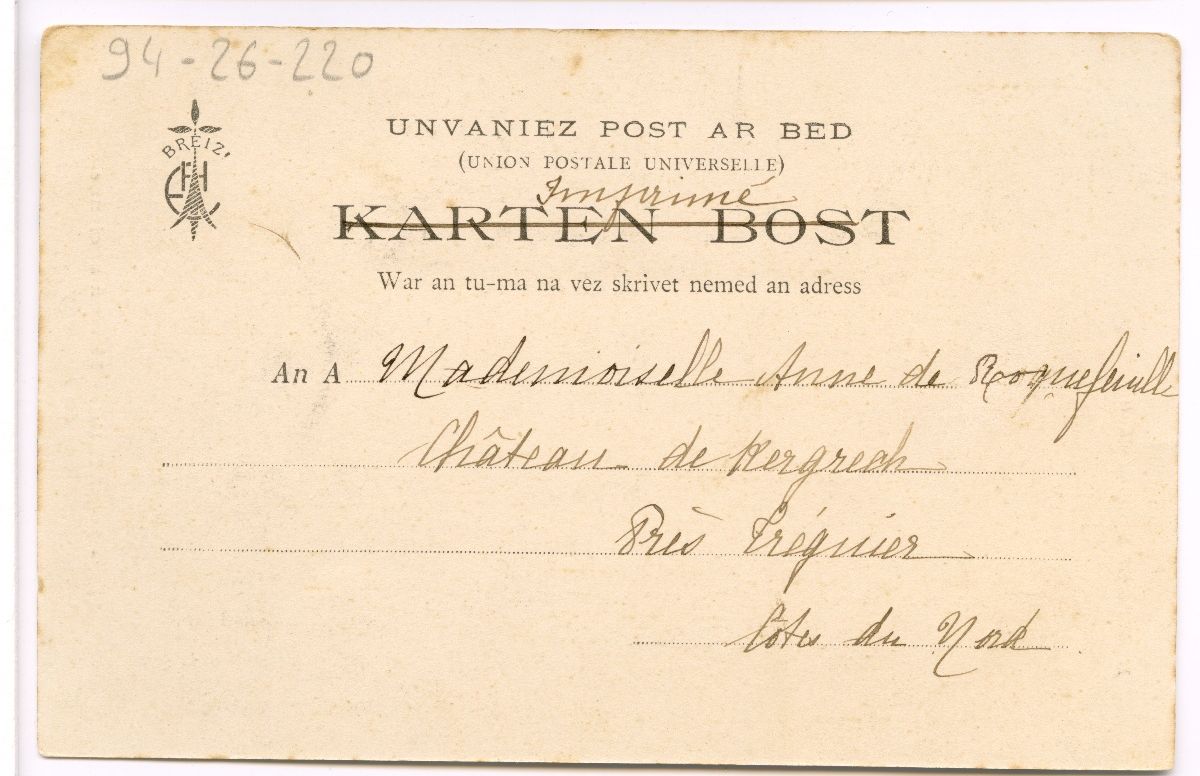 94-26-220
BREIZ
UNVANIEZ POST AR BED
(UNION POSTALE UNIVERSELLE)
Imprimé
KARTEN BOST
War an tu-ma na vez skrivet nemed an adress
An A Mademoiselle Anne de Roquefeuille
Château de Kergrech
Près Tréguier
Côtes du Nord